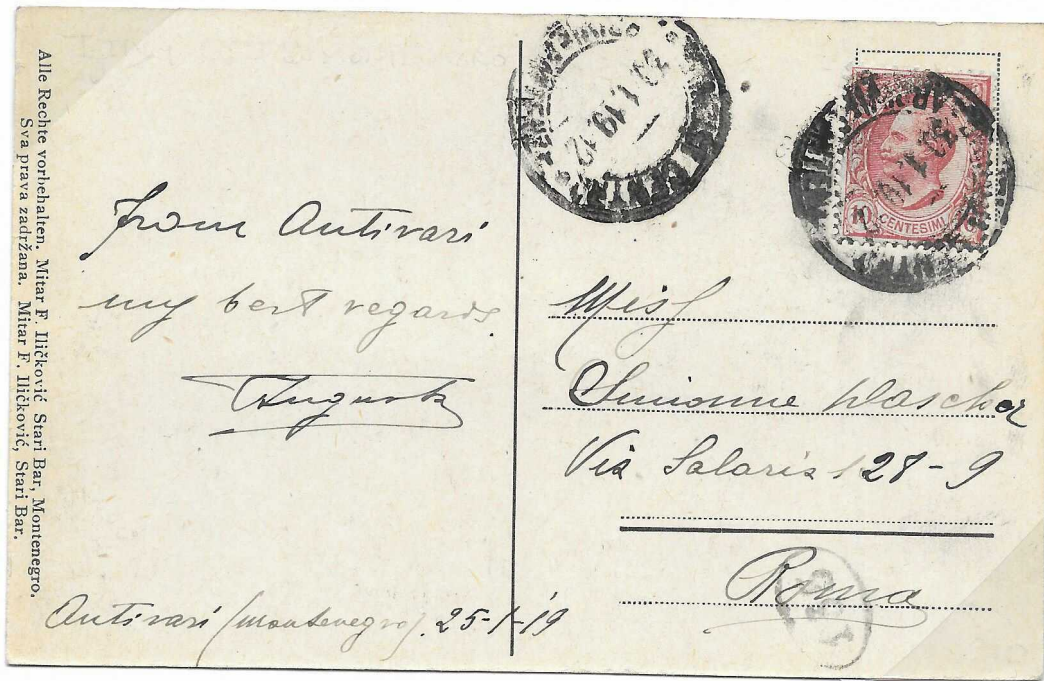 Alle Rechte vorbehalten. Mitar F. Iličković Stari Bar, Montenegro.
Sva prava zadržana. Mitar F. Iličković, Stari Bar.
from Antivari
my best regards
Antivari (Montenegro). 25-1-19
30.1.19.12
CENTRO
10 CENTESIMI
Miss
Simonne
Via Salaria 128-9
Roma